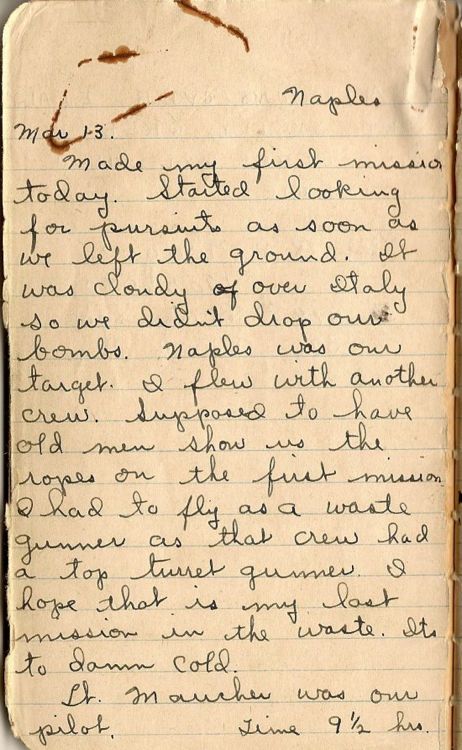 Naples
Mar 13.
Made my first mission
today. Started looking
for pursuits as soon as
we left the ground. It
was cloudy of over Italy
so we didn't drop our
bombs. Naples was our
target. I flew with another
crew. Supposed to have
old men show us the
ropes on the first mission
I had to fly as a waste
gunner as that crew had
a top turret gunner. I
hope that is my last
mission in the waste. Its
to damn cold.
Lt. Maucher was our
pilot. Time 9½ hrs.